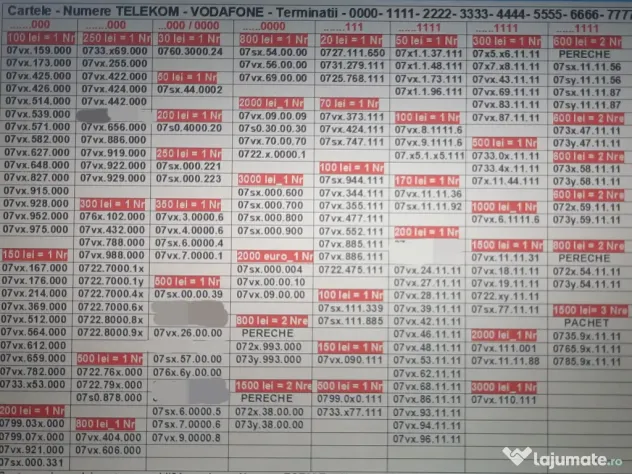 Cartele - Numere TELEKOM - VODAFONE - Terminatii - 0000- 1111- 2222- 3333- 4444- 5555- 6666- 7777
.......000
100 lei = 1 Nr
07vx.159.000
07vx.173.000
07vx.425.000
07vx.426.000
07vx.514.000
07vx.539.000
07vx.571.000
07vx.582.000
07vx.627.000
07vx.648.000
07vx.827.000
07vx.915.000
07vx.928.000
07vx.952.000
07vx.975.000
150 lei = 1 Nr
07vx.167.000
07vx.176.000
07vx.214.000
07vx.369.000
07vx.512.000
07vx.564.000
07vx.612.000
07vx.659.000
07vx.782.000
0733.x53.000
200 lei = 1 Nr
0799.03x.000
0799.07x.000
07vx.921.000
07sx.000.331
.......000
250 lei = 1 Nr
0733.x69.000
07vx.255.000
07vx.422.000
07vx.424.000
07vx.442.000
07vx.656.000
07vx.886.000
07vx.919.000
07vx.922.000
07vx.929.000
300 lei = 1 Nr
076x.102.000
07vx.432.000
07vx.788.000
07vx.988.000
0722.7000.1x
0722.7000.1y
0722.7000.4x
0722.7000.6x
0722.8000.2x
0722.8000.9x
500 lei = 1 Nr
0722.76x.000
0722.79x.000
07s0.878.000
800 lei_1 Nr
07vx.404.000
07vx.606.000
...000 / 0000
30 lei = 1 Nr
0760.3000.24
50 lei = 1 Nr
07sx.44.0002
200 lei = 1 Nr
07s0.4000.20
250 lei = 1 Nr
07sx.000.221
07sx.000.223
350 lei = 1 Nr
07vx.3.0000.6
07vx.4.0000.6
07sx.6.0000.4
07vx.7.0000.1
500 lei = 1 Nr
07sx.00.00.39
07vx.26.00.00
07sx.57.00.00
076x.6y.00.00
07sx.6.0000.5
07sx.7.0000.6
07vx.9.0000.8
.......0000
800 lei = 1 Nr
07sx.54.00.00
07vx.56.00.00
07vx.69.00.00
2000 lei_1 Nr
07vx.09.00.09
07s0.30.00.30
07vx.70.00.70
0722.x.0000.1
3000 lei_1 Nr
07sx.000.600
07sx.000.700
07sx.000.800
07sx.000.900
2000 euro_1 Nr
07sx.000.004
07vx.00.00.10
07vx.09.00.00
800 lei = 2 Nre
PERECHE
072x.993.000
073y.993.000
1500 lei = 2 Nre
PERECHE
072x.38.00.00
073y.38.00.00
.......111
20 lei = 1 Nr
0727.111.650
0731.279.111
0725.768.111
70 lei = 1 Nr
07vx.373.111
07vx.424.111
07sx.747.111
100 lei = 1 Nr
07sx.944.111
07vx.344.111
07vx.355.111
07vx.477.111
07vx.552.111
07vx.885.111
07vx.886.111
0722.475.111
100 lei = 1 Nr
07sx.111.339
07sx.111.885
150 lei = 1 Nr
07vx.090.111
500 lei = 1 Nr
0799.0x0.111
0733.x77.111
.......1111
50 lei = 1 Nr
07x1.1.37.111
07x1.1.48.111
07vx.1.73.111
07x1.1.96.111
100 lei = 1 Nr
07vx.8.1111.6
07vx.9.1111.6
07.x5.1.x5.111
170 lei = 1 Nr
07vx.11.11.36
07sx.11.11.92
200 lei = 1 Nr
07vx.24.11.11
07vx.27.11.11
07vx.28.11.11
07vx.39.11.11
07vx.42.11.11
07vx.46.11.11
07vx.53.11.11
07vx.62.11.11
07vx.68.11.11
07vx.86.11.11
07vx.93.11.11
07vx.94.11.11
07vx.96.11.11
.......1111
300 lei = 1 Nr
07x5.x6.11.11
07x7.x8.11.11
07vx.43.11.11
07vx.69.11.11
07vx.83.11.11
07vx.87.11.11
500 lei = 1 Nr
0733.0x.11.11
0733.4x.11.11
07x.11.44.111
1000 lei_1 Nr
07vx.6.1111.6
1500 lei = 1 Nr
07vx.11.11.31
07vx.18.11.11
07vx.19.11.11
0722.xy.11.11
07sx.77.11.11
2000 lei_1 Nr
07vx.111.001
07vx.11.11.88
3000 lei_1 Nr
07vx.110.111
.......1111
600 lei = 2 Nr
PERECHE
07sx.11.11.56
07sy.11.11.56
07sx.11.11.87
07sy.11.11.87
600 lei = 2 Nre
073x.47.11.11
073y.47.11.11
800 lei = 2 Nre
073x.58.11.11
073y.58.11.11
800 lei = 2 Nre
072x.59.11.11
073y.59.11.11
800 lei = 2 Nre
PERECHE
072x.54.11.11
073y.54.11.11
1500 lei= 3 Nre
PACHET
0735.9x.11.11
0765.9x.11.11
0785.9x.11.11
lajumate.ro